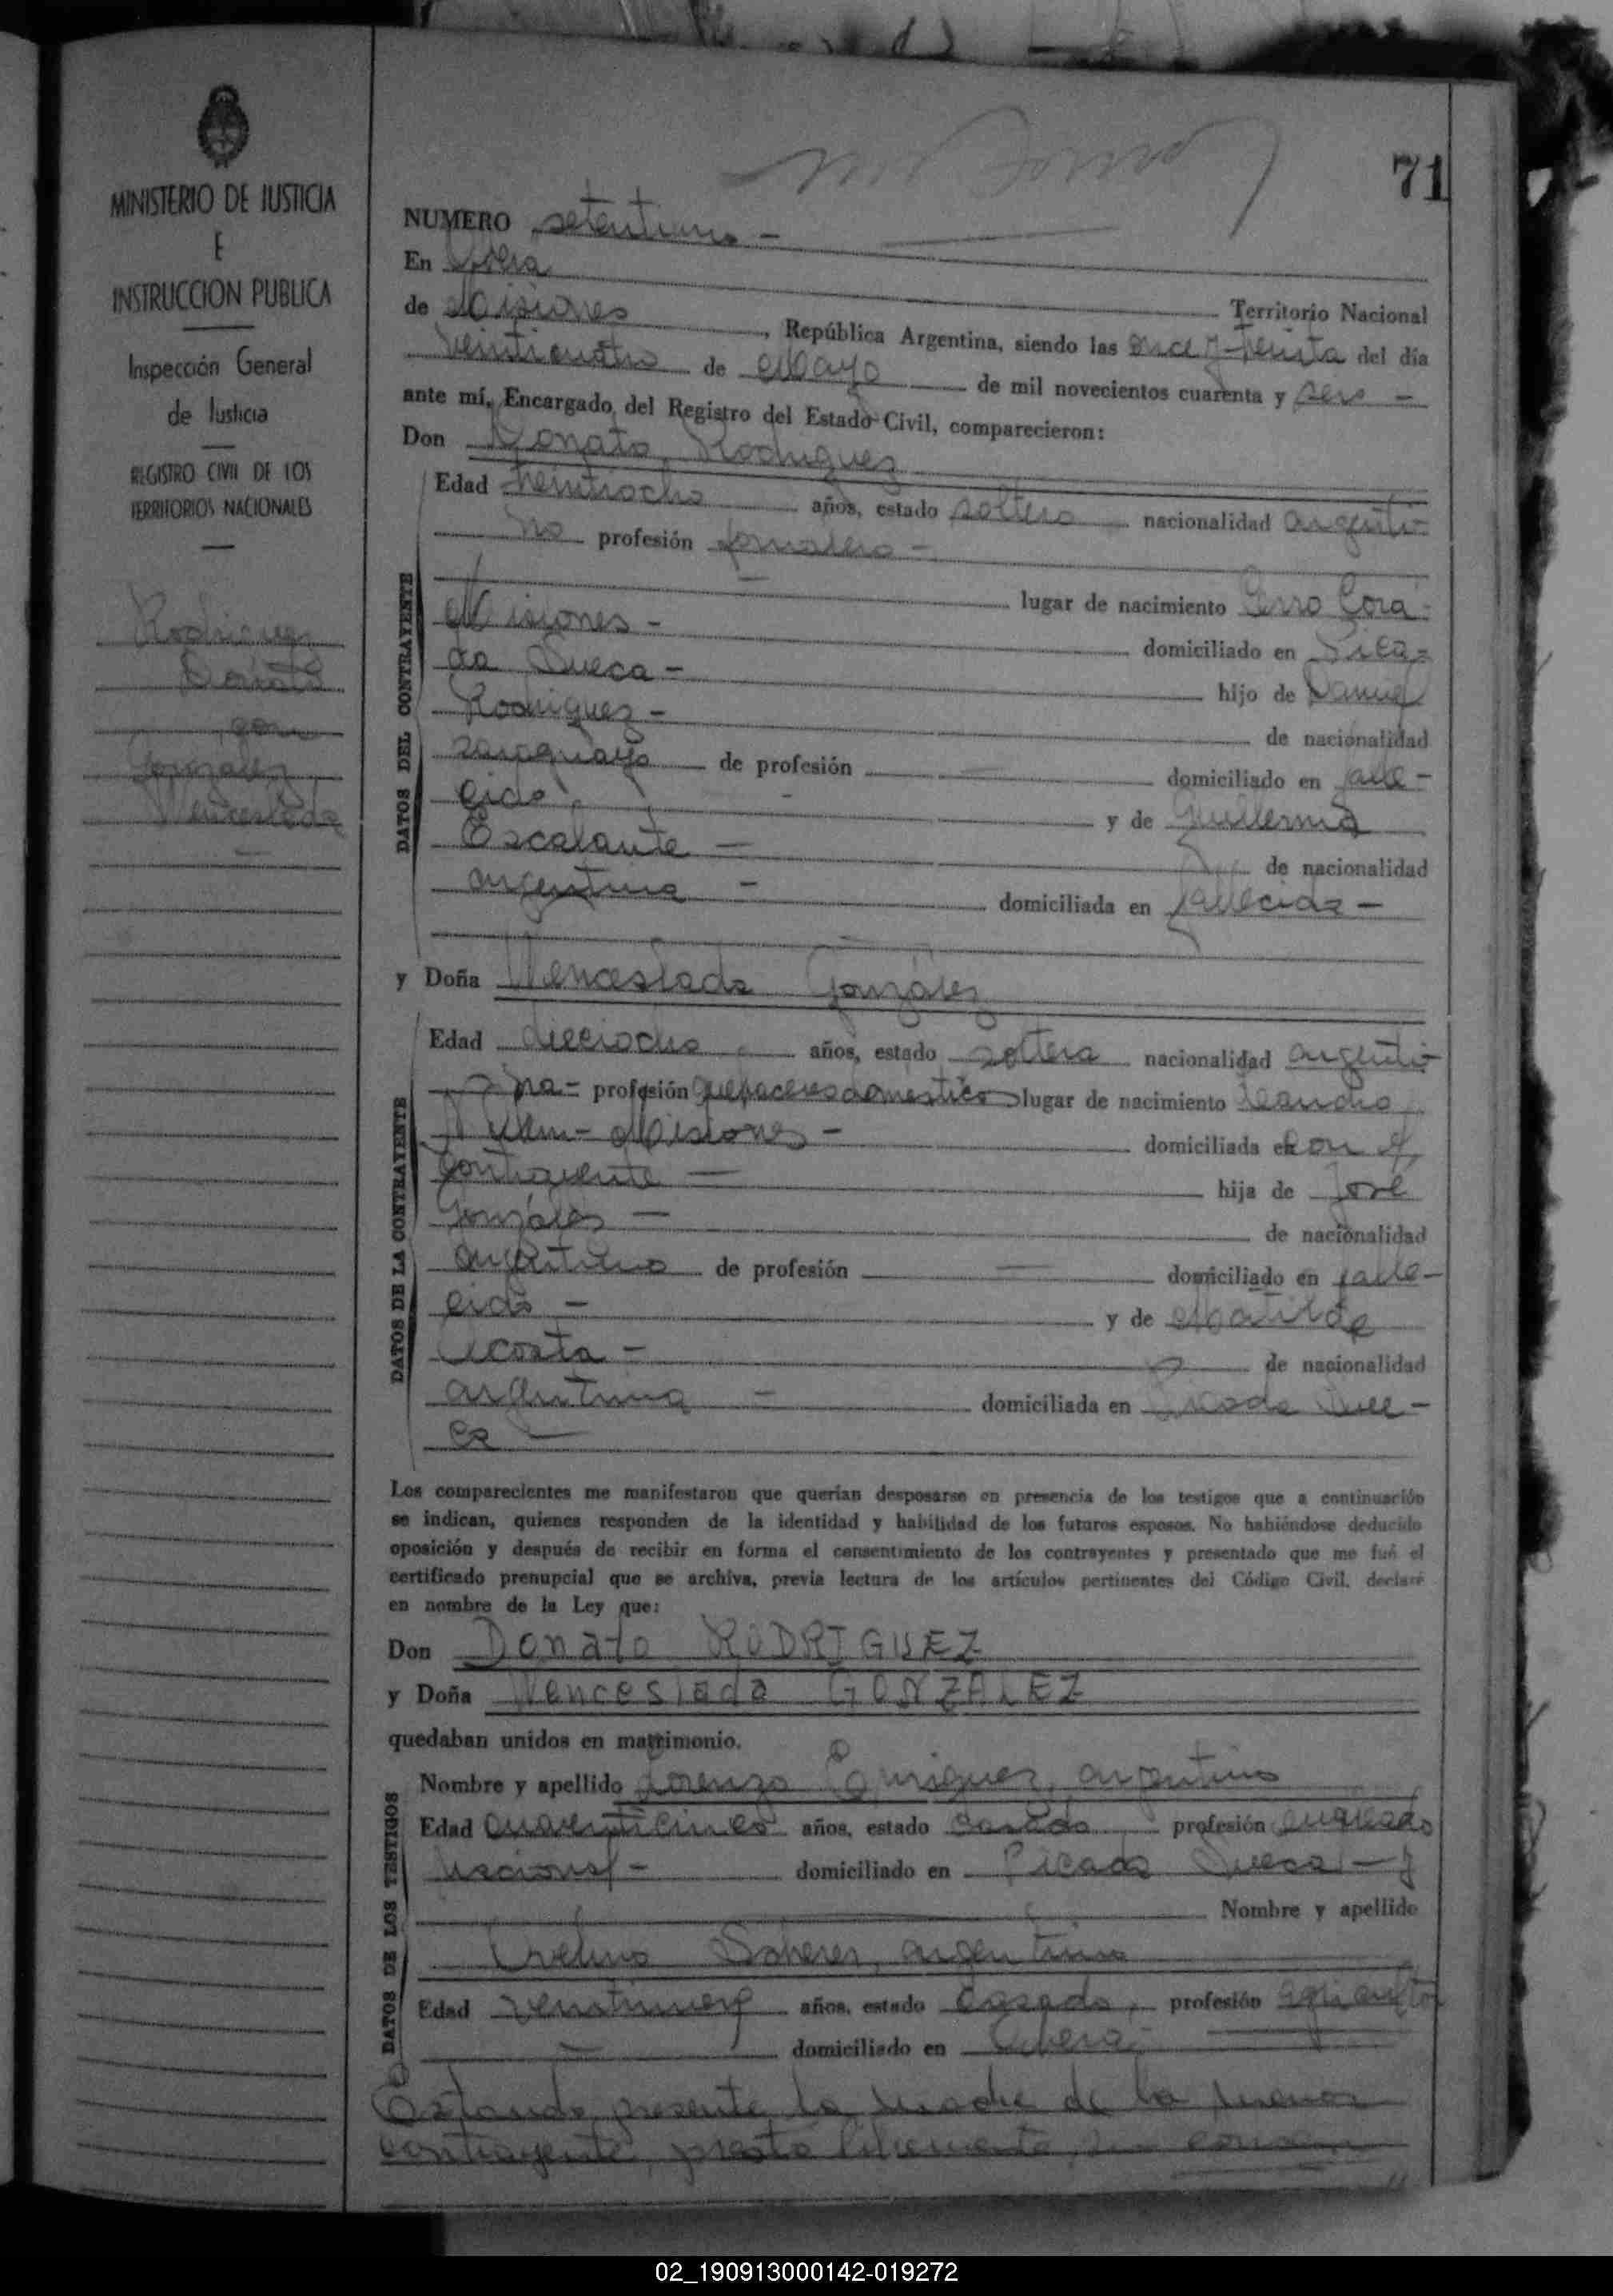 MINISTERIO DE JUSTICIA
E
INSTRUCCION PUBLICA
Inspección General
de Justicia
REGISTRO CIVIL DE LOS
TERRITORIOS NACIONALES
Rodriguez
Donato
con
Gonzalez
Wenceslada
71
NUMERO setentiuno -
En Obera
Territorio Nacional
de Misiones, República Argentina, siendo las once y treinta del día
veinticuatro de Mayo de mil novecientos cuarenta y seis -
ante mí, Encargado del Registro del Estado Civil, comparecieron:
Don Donato Rodriguez
DATOS DEL CONTRAYENTE
Edad treintiocho años, estado soltero nacionalidad argenti-
no profesión jornalero -
lugar de nacimiento Cerro Corá
Misiones - domiciliado en Pica-
da Sueca - hijo de Daniel
Rodriguez - de nacionalidad
paraguayo de profesión — domiciliado en falle-
cido - y de Guillerma
Escalante - de nacionalidad
argentina - domiciliada en fallecida -
y Doña Wenceslada Gonzalez
DATOS DE LA CONTRAYENTE
Edad dieciocho años, estado soltera nacionalidad argenti-
na - profesión quehaceres domestico lugar de nacimiento Leandro
N Alem - Misiones - domiciliada en con el
contrayente - hija de José
Gonzalez - de nacionalidad
argentino de profesión — domiciliado en falle-
cido - y de Matilde
Acosta - de nacionalidad
argentina - domiciliada en Picada Sue-
ca -
Los comparecientes me manifestaron que querían desposarse en presencia de los testigos que a continuación
se indican, quienes responden de la identidad y habilidad de los futuros esposos. No habiéndose deducido
oposición y después de recibir en forma el consentimiento de los contrayentes y presentado que me fué el
certificado prenupcial que se archiva, previa lectura de los artículos pertinentes del Código Civil, declaré
en nombre de la Ley que:
Don Donato RODRIGUEZ
y Doña Wenceslada GONZALEZ
quedaban unidos en matrimonio.
DATOS DE LOS TESTIGOS
Nombre y apellido Lorenzo argentino
Edad cuarenticinco años, estado casado profesión empleado
nacional - domiciliado en Picada Sueca - y
Nombre y apellido
argentino
Edad años, estado casado, profesión agricultor
domiciliado en Obera -
Estando presente la madre de la menor
contrayente, presto libremente su consen
02_190913000142-019272